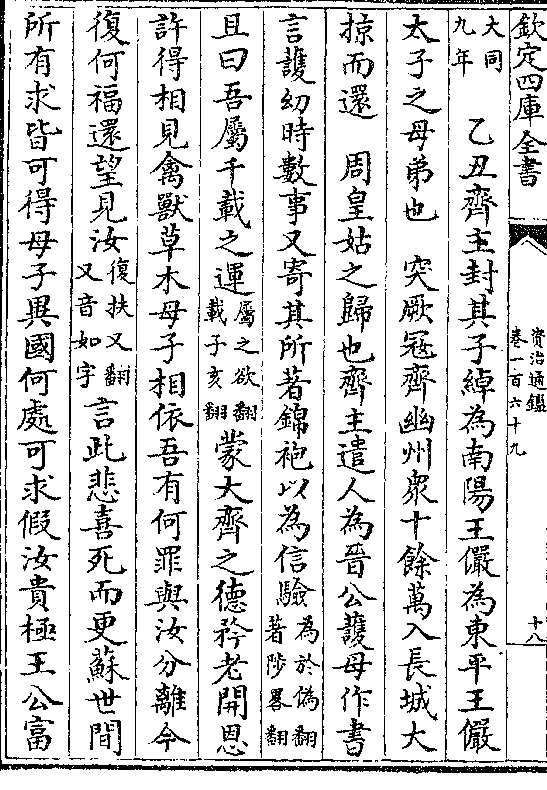 欽定四庫全書
資治通鑑
卷一百六十九
十八
大同九年
乙丑齊主封其子綽為南陽王儼為東平王儼
太子之母弟也 突厥冦齊幽州衆十餘萬入長城大
掠而還 周皇姑之歸也齊主遣人為晉公護母作書
言護幼時數事又寄其所著錦袍以為信驗為於偽翻著陟畧翻
且曰吾屬千載之運屬之欲翻載子亥翻蒙大齊之德矜老開恩
許得相見禽獸草木母子相依吾有何罪與汝分離今
復何福還望見汝復扶又翻又音如字言此悲喜死而更蘇世間
所有求皆可得母子異國何處可求假汝貴極王公富